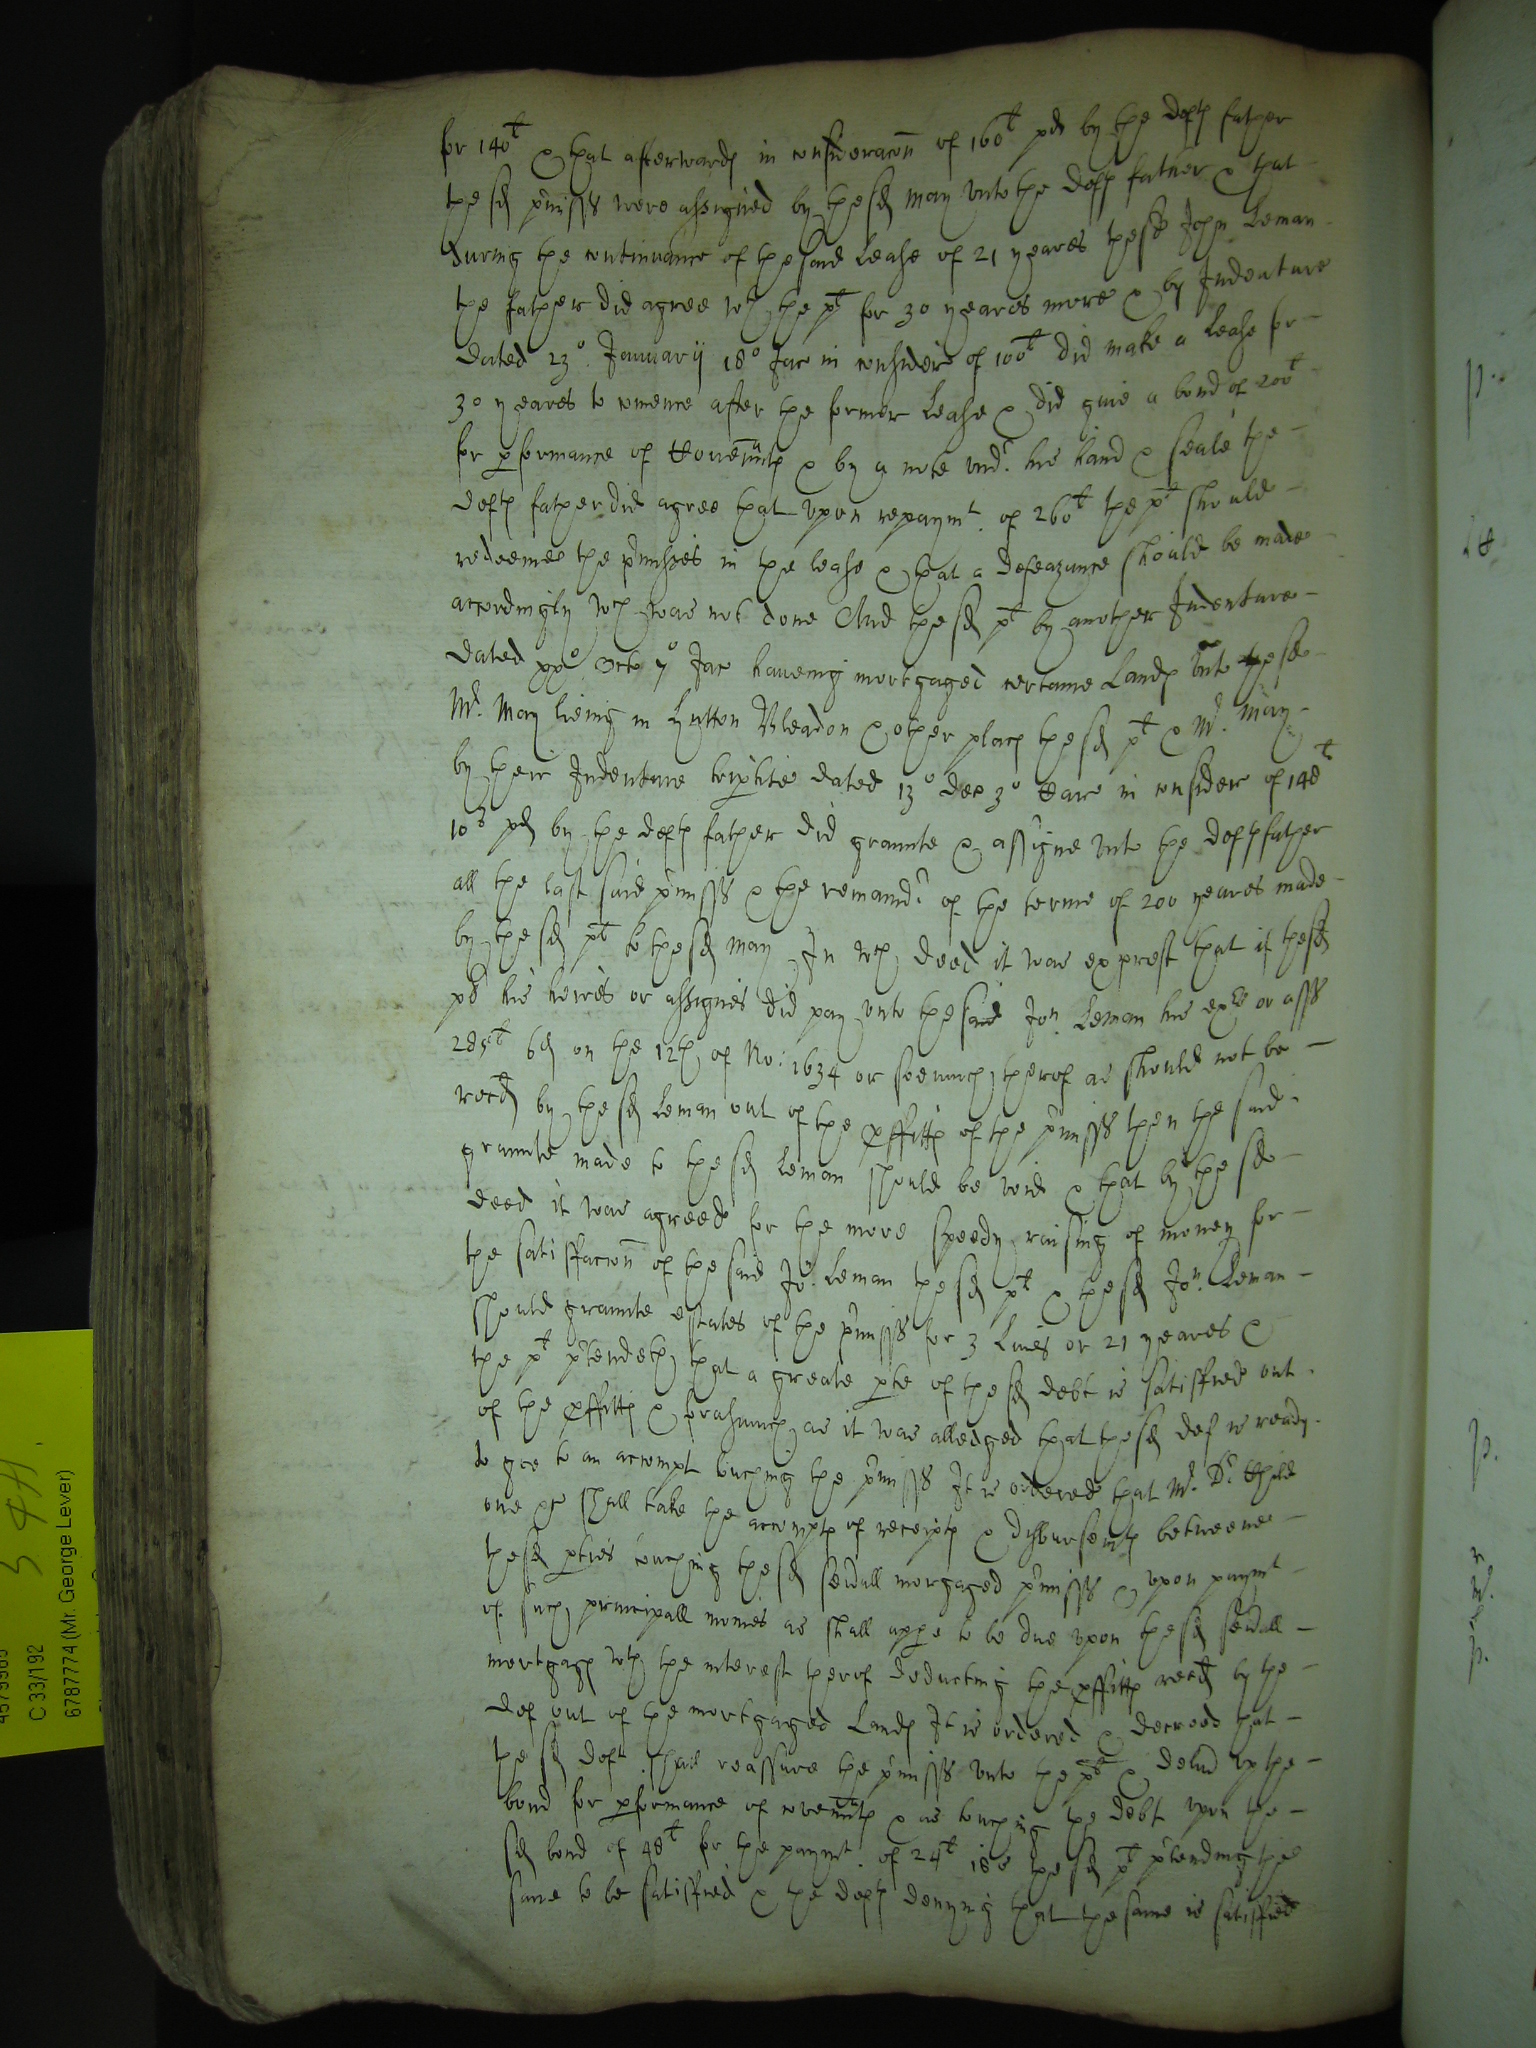 for 140l & that afterwards in consideracon of 160l pd by the defts father
the sd pmisss were assigned by the sd May vnto the defts father & that
during the continuance of the said Lease of 21 yeares the sd John Leman
the father did agree wth the plt for 30 yeares more & by Indenture
dated 23o Januarij 18o Jac in consider of 100l did make a Lease for
30 yeares to comence after the former Lease & did giue a bond of 200l
for pformance of Couenants & by a note vndr his hand & seale the
defts father did agree that vpon repaymt of 260l the plt should
redeeme the pmisses in the lease & that a defeazance should be made
accordingly wch was not done And the sd plt by another Indenture
dated xxo Octo 7o Jac haueing mortgaged certaine Lands vnto the sd
Mr May lieing in Hutton Bleadon & other places the sd plt & Mr May
by their Indenture tripartite dated 13o Dec 3o Caro in consider of 148l
10s pd by the defts father did graunte & assigne vnto the defts father
all the last said pmisss & the remaindr of the terme of 200 yeares made
by the sd plt to the sd May In wch deed it was exprest that if the sd
plt his heires or assignes did pay vnto the said Jon Leman his exrs or asss
285l 6d on the 12th of No: 1634 or soe much therof as should not be
recd by the sd Leman out of the pffitts of the pmisss then the said
graunte made to the sd Leman should be void & that by the sd
deed it was agreed for the more speedy raising of money for
the satisfaccon of the said Jo: Leman the sd plt & the sd Jon Leman
should graunte estates of the pmisss for 3 Liues or 21 yeares &
the plt ptendeth that a greate pte of the sd debt is satisfied out
of the pffitts & forasmuch as it was alledged that the sd def is ready
to goe to an accompt touching the pmisss It is ordered that Mr Dr Child
one &c shall take the accompts of receipts & disbursemts betweene
the sd pties touching the sd seuall morgaged pmisss & vpon paymt
of such principall monies as shall appe to be due vpon the sd seuall
mortgages wth the interest therof deducting the pffitts recd by the
def out of the mortgaged Lands It is ordered & decreed that
the sd deft shall reassure the pmisss vnto the plt & deliu vp the
bond for pformance of couenants & as touching the debt vpon the
sd bond of 48l for the paymt of 24l 18s the sd plt ptending the
same to be satisfied & the defts denying that the same is satisfied
C 33/192
6787774 (Mr. George Lever)